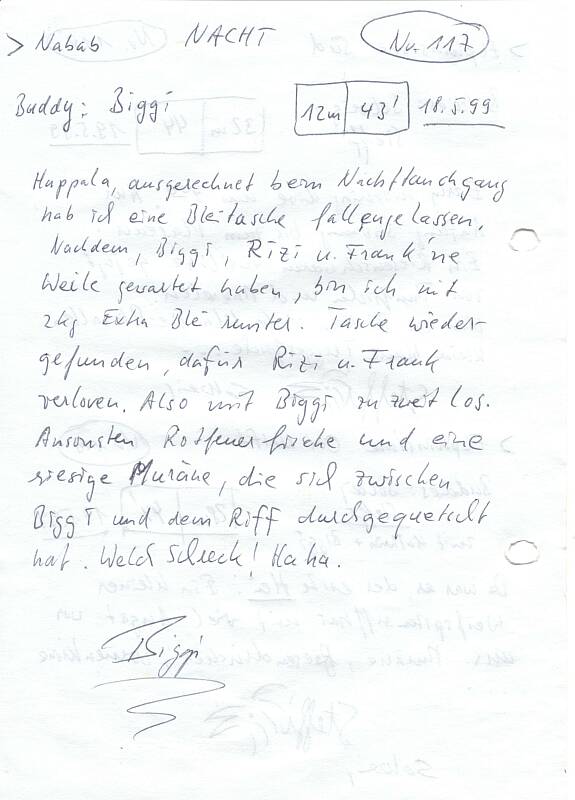 > Nabab NACHT No. 117
Buddy: Biggi 12m 43' 18.5.99
Huppala, ausgerechnet beim Nachttauchgang
hab ich eine Bleitasche fallengelassen.
Nachdem, Biggi, Rizi u. Frank 'ne
Weile gewartet haben, bin ich mit
2kg Extra Blei runter. Tasche wieder-
gefunden, dafür Rizi u. Frank
verloren. Also mit Biggi zu zweit los.
Ansonsten Rotfeuerfische und eine
riesige Muräne, die sich zwischen
Biggi und dem Riff durchgequetscht
hat. Welch Schreck! Haha.
Biggi